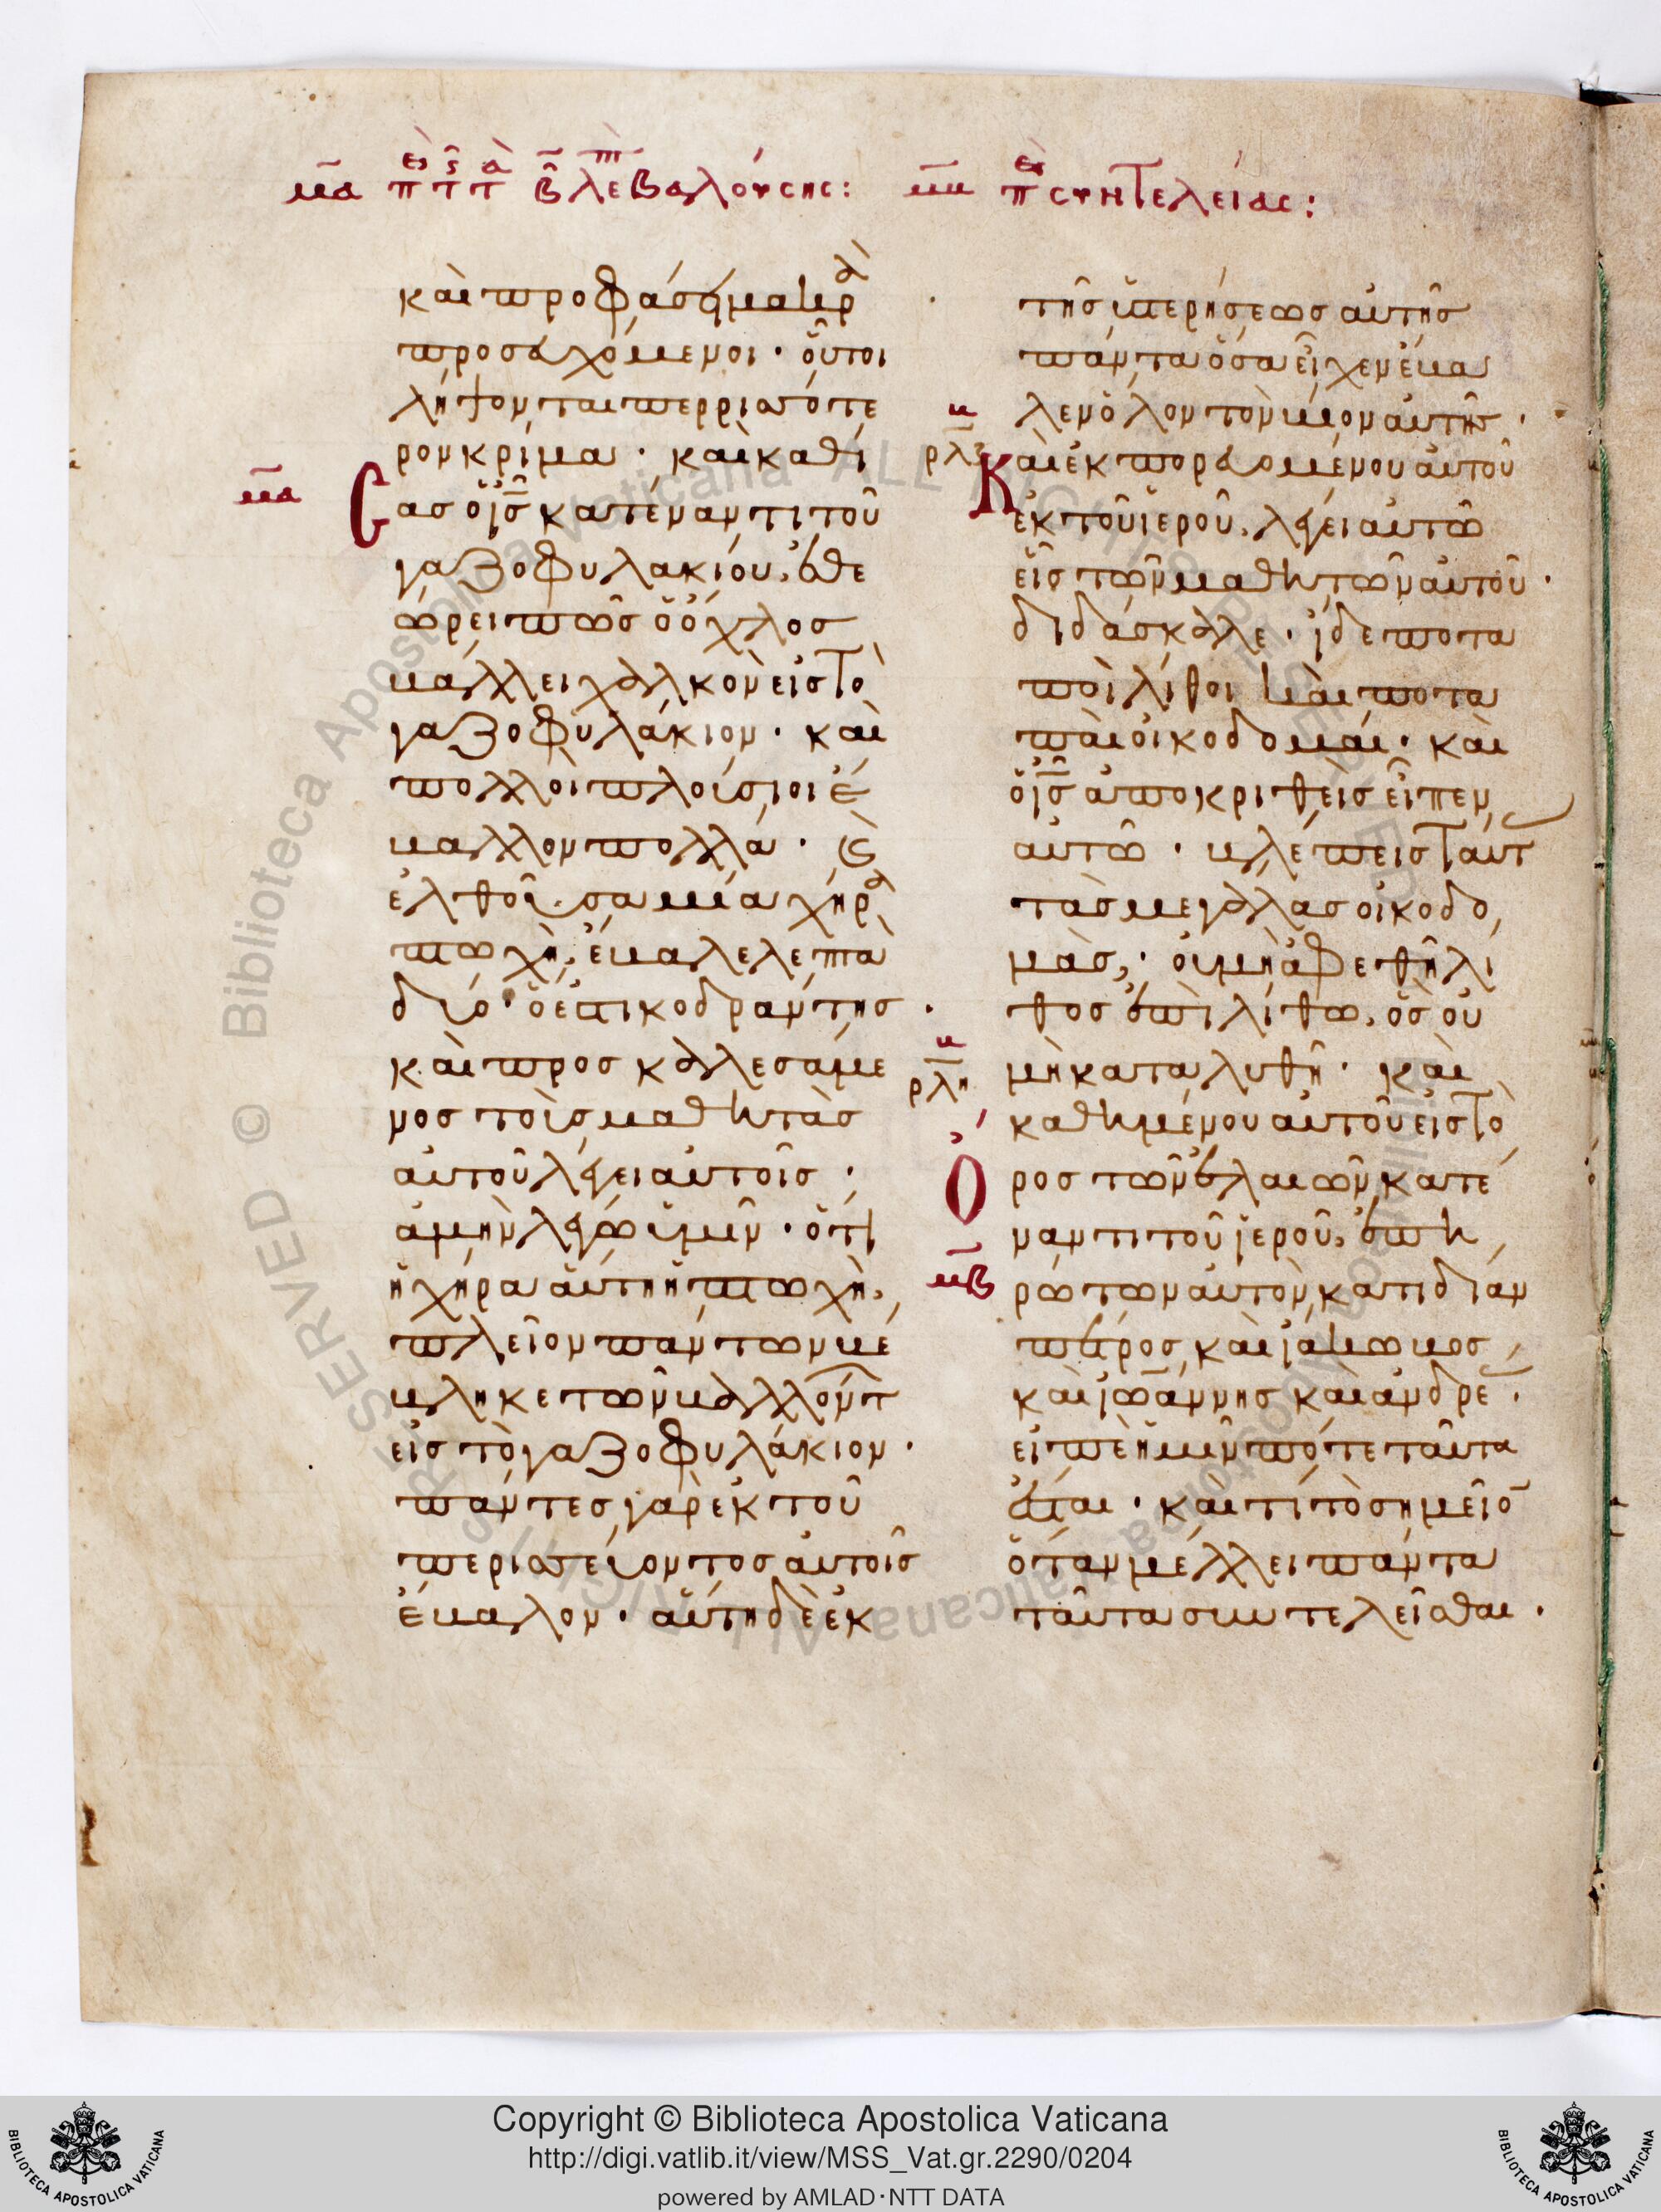 μα πε τς τα β λεπ βαλούσης: μβ πε συντελείας:
καὶ προφάσει μακρὰ
προσευχόμενοι · οὗτοι
λήψονται περρισσότε
ρον κρίμα · καὶ καθί
μα
σας ὁ ἰς̅ κατέναντι τοῦ
γαζοφυλακίου, ἐθε
ώρει πῶς ὁ ὄχλος
βάλλει χαλκὸν εἰς τὸ
γαζοφυλάκιον · καὶ
πολλοὶ πλούσιοι ἔ
βαλλον πολλά · καὶ
ἐλθοῦσα μία χήρα
πτωχὴ, ἔβαλε λεπτὰ
δύο · ὅ ἐστι κοδράντης ·
καὶ προσκαλεσάμε
νος τοὺς μαθητὰς
αὐτοῦ λέγει αὐτοῖς ·
ἀμὴν λέγω ὑμῖν · ὅτι
ἡ χήρα αὕτη ἡ πτωχὴ,
πλεῖον πάντων βέ
βληκε τῶν βαλλόντ
εἰς τὸ γαζοφυλάκιον ·
πάντες γὰρ ἐκ τοῦ
περισσεύοντος αὐτοῖς
ἔβαλον · αὕτη δὲ ἐκ
τῆς ὑστερήσεως αὐτῆς
πάντα ὅσα εἶχεν ἔβα
λεν ὅλον τὸν βίον αὐτῆς ·
ρλζ
Καὶ ἐκπορευομένου αὐτοῦ
ἐκ τοῦ ἱεροῦ, λέγει αὐτῶ
εἷς τῶν μαθητῶν αὐτοῦ ·
διδάσκαλε · ἴδε ποτα
ποὶ λίθοι καὶ ποτα
παὶ οἰκοδομαί · καὶ
ὁ ἰς̅ ἀποκριθεὶς εἶπεν
αὐτῶ · βλέπεις ταύτ
τὰς μεγάλας οἰκοδο
μάς, · οὐ μὴ ἀφεθῆ λί
θος ἐπὶ λίθω, ὃς οὐ
ρλη
μὴ καταλυθῆ · καὶ
καθημένου αὐτοῦ εἰς τὸ
Ὄρος τῶν ἐλαιῶν κατέ
ναντι τοῦ ἱεροῦ, ἐπη
μβ
ρώτων αὐτὸν κατιδίαν
πέτρος καὶ ἰάκωβος
καὶ ἰωάννης καὶ ἀνδρέ ·
εἰπὲ ἡμῖν πότε ταῦτα
ἔσται · καὶ τί τὸ σημεῖο
ὅταν μέλλει πάντα
ταῦτα συντελεῖσθαι ·
Copyright © Biblioteca Apostolica Vaticana
http://digi.vatlib.it/view/MSS_Vat.gr.2290/0204
powered by AMLAD·NTT DATA
BIBLIOTECA APOSTOLICA VATICANA
BIBLIOTECA APOSTOLICA VATICANA